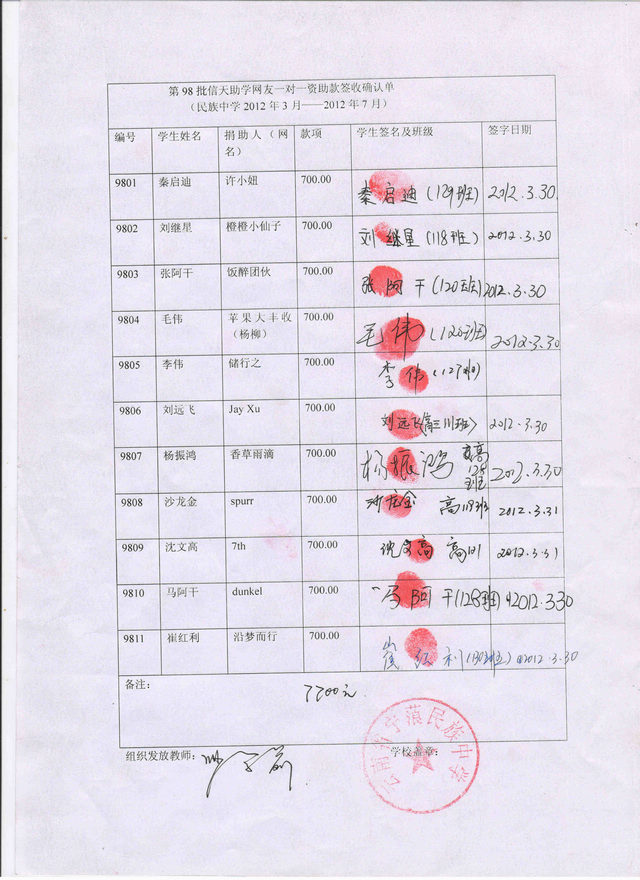 第 98 批信天助学网友一对一资助款签收确认单
（民族中学 2012 年 3 月——2012 年 7 月）
编号 学生姓名 捐助人（网名） 款项 学生签名及班级 签字日期
9801 秦启迪 许小妞 700.00 秦启迪(129班) 2012.3.30
9802 刘继星 橙橙小仙子 700.00 刘继星(118班) 2012.3.30
9803 张阿干 饭醉团伙 700.00 张阿干(120班) 2012.3.30
9804 毛伟 苹果大丰收（杨柳） 700.00 毛伟(120班) 2012.3.30
9805 李伟 储行之 700.00 李伟(127班)
9806 刘远飞 Jay Xu 700.00 刘远飞 2012.3.30
9807 杨振鸿 香草雨滴 700.00 杨振鸿 2012.3.30
9808 沙龙金 spurr 700.00 沙龙金 高118班 2012.3.31
9809 沈文高 7th 700.00 沈文高 2012.3.31
9810 马阿干 dunkel 700.00 马阿干(128班) 2012.3.30
9811 崔红利 沿梦而行 700.00 崔红利(130班) 2012.3.30
备注：
7700元
组织发放教师： 学校盖章：
云南省宁蒗民族中学